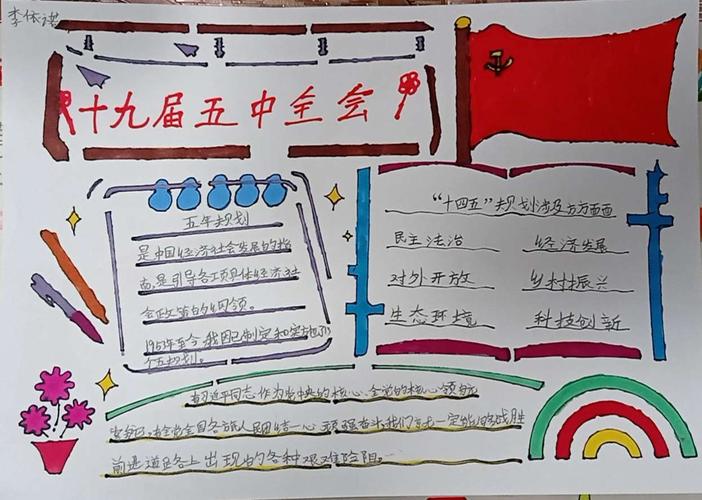 李依诺
十九届五中全会
五年规划
是中国经济社会发展的指
南,是引导各项具体经济社
会政策的纲领。
1953年至今,我国已制定和实施了
个五规划。
“十四五”规划涉及方方面面
民主法治 经济发展
对外开放 乡村振兴
生态环境 科技创新
有习近平同志作为党中央的核心、全党的核心领航
全党全国各族人民团结一心 顽强奋斗我们就一定能够战胜
前进道路上出现的各种艰难险阻。